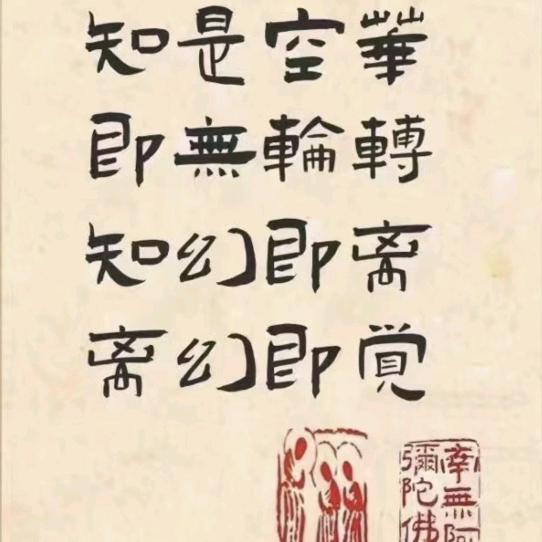 知是空華
即無輪轉
知幻即离
离幻即覚
南無阿
彌陀佛